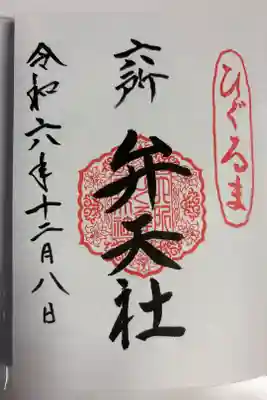 ひぐるま
六所
弁天社
令和六年十二月八日